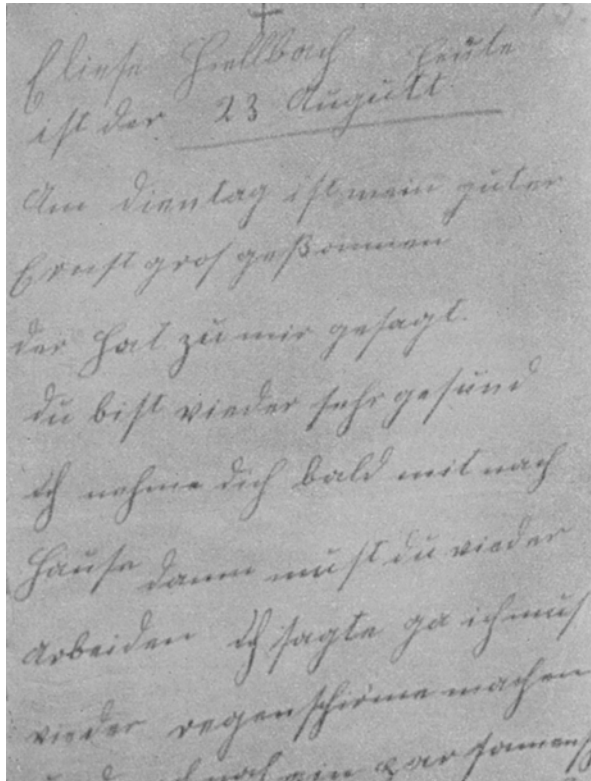 Eliese Hiellbach heute
ist der 23 Augustt
Am Dientag ist mein guter
Ernst gros gekommen
der hat zu mir gesagt.
du bist vieder sehr gesund
ich nehme dich bald mit nach
Hause dann must du vieder
Arbeiden ich sagte ga ich mus
vieder regenschirme machen
ein par